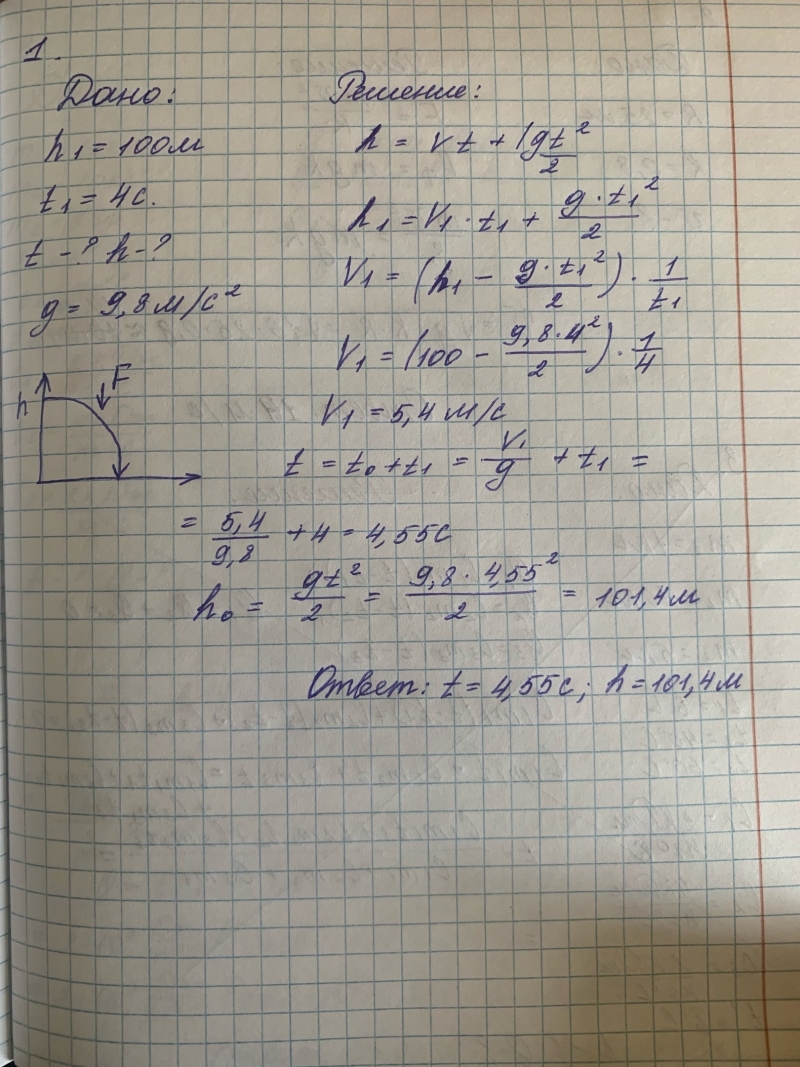 1.
Дано:
h₁ = 100м
t₁ = 4с.
t - ? h - ?
g = 9,8 м/с²
h
F
Решение:
h = Vt + gt²/2
h₁ = V₁ · t₁ + g · t₁²/2
V₁ = (h₁ - g · t₁²/2) · 1/t₁
V₁ = (100 - 9,8 · 4²/2) · 1/4
V₁ = 5,4 м/с
t = t₀ + t₁ = V₁/g + t₁ =
= 5,4/9,8 + 4 = 4,55с
h₀ = gt²/2 = 9,8 · 4,55²/2 = 101,4м
Ответ: t = 4,55с; h = 101,4м